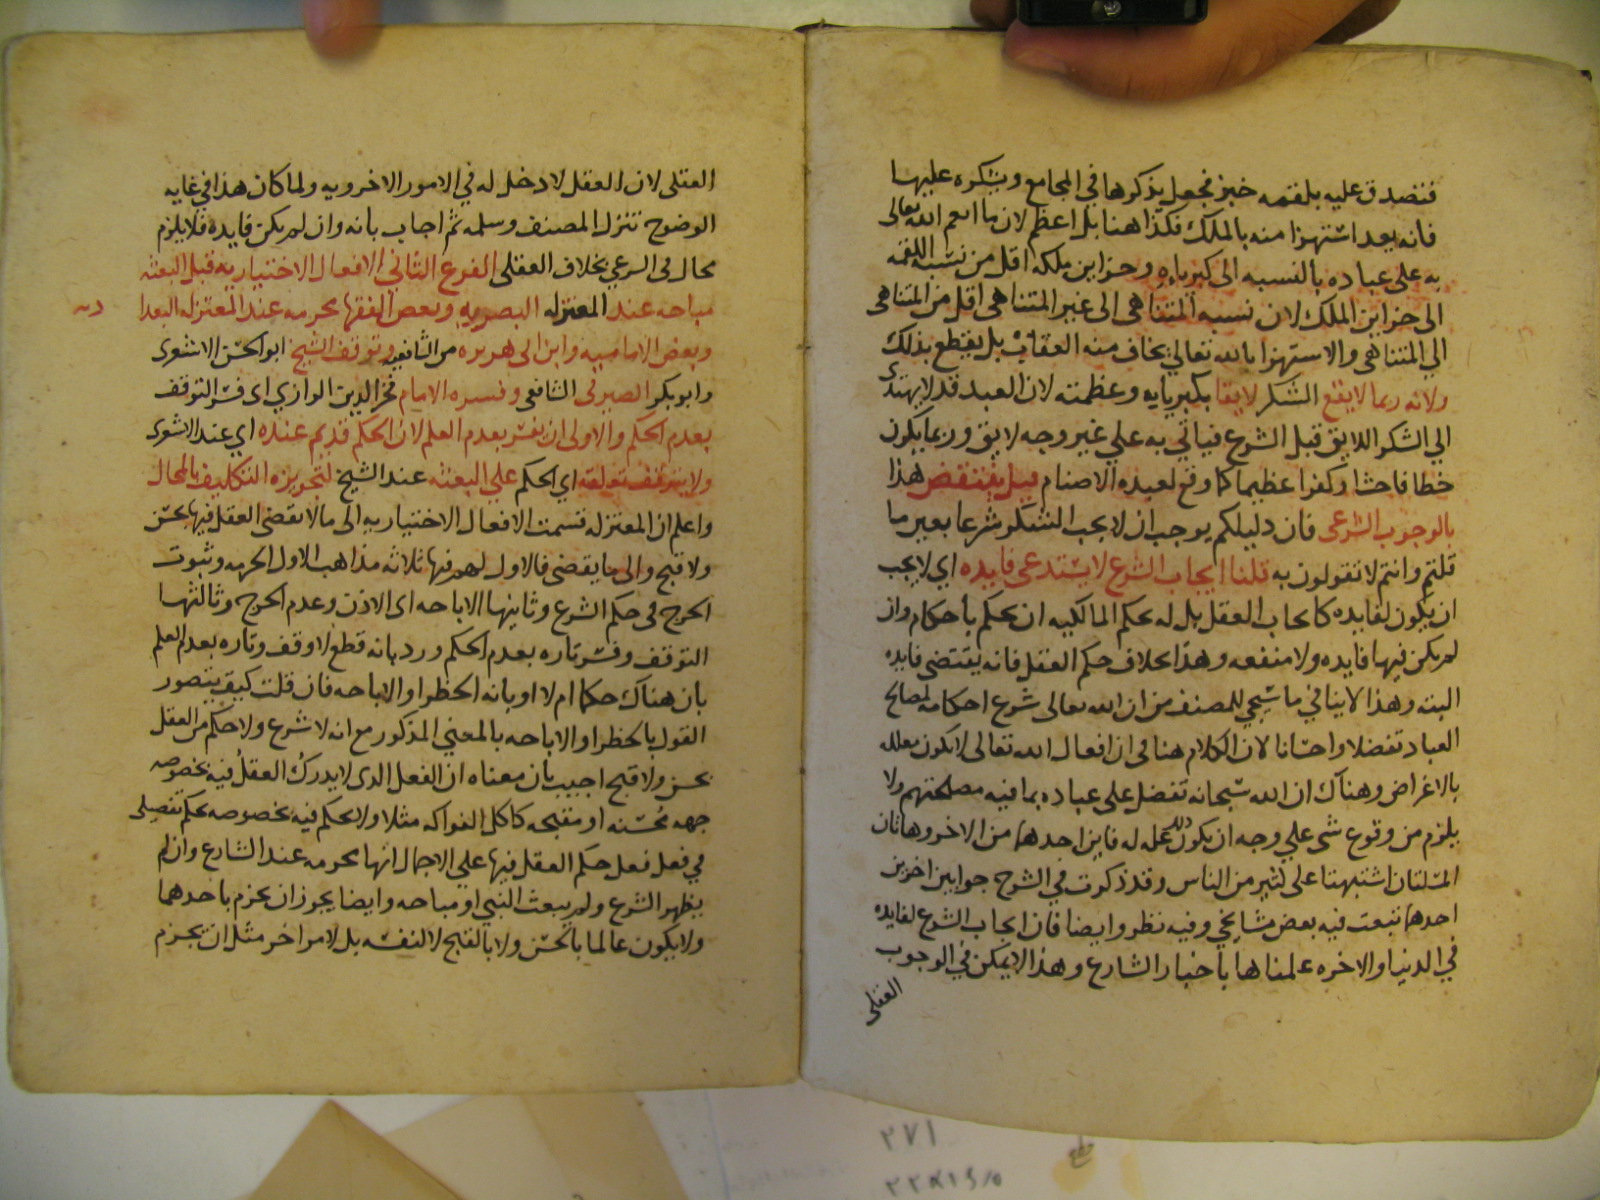 فتصدق عليه بلقمه خبز فجعل يذكرها في المجامع ويشكره عليها
فانه يعد استهزا منه بالملك فكذا هنا بل اعظم لان ما انعم الله تعالى
به على عباده بالنسبه الى كبرياه وخزاين ملكه اقل من نسبه اللقمه
الى خزاين الملك لان نسبه المتناهى الى غير المتناهى اقل من المتناهى
الي المتناهى والاستهزا بالله تعالى يخاف منه العقاب بل يقطع بذلك
ولانه ربما لا يقع الشكر لايقا بكبريايه وعظمته لان العبد قد لا يهتدى
الي الشكر اللايق قبل الشرع فياتي به علي غير وجه لايق وربما يكون
خطا فاحشا وكفرا عظيما كما وقع لعبده الاصنام قيل ينتقض هذا
بالوجوب الشرعى فان دليلكم يوجب ان لا يجب الشكر شرعا بعين ما
قلتم وانتم لا تقولون به قلنا ايجاب الشرع لا يستدعى فايده اي لا يجب
ان يكون لفايده كايجاب العقل بل له بحكم المالكيه ان يحكم باحكام وان
لم يكن فيها فايده ولا منفعه وهذا بخلاف حكم العقل فانه يقتضى فايده
البته وهذا لا ينافي ما سيجي للمصنف من ان الله تعالى شرع احكامه لمصالح
العباد تفضلا واحسانا لان الكلام هنا فى ان افعال الله تعالى لا تكون معلله
بالاغراض وهناك ان الله سبحانه تفضل على عباده بما فيه مصلحتهم ولا
يلزم من وقوع شى علي وجه ان يكون ذلك عله له فاين احدهما من الاخر وهاتان
المسلتان اشتبهتا على كثير من الناس وقد ذكرت في الشرح جوابين اخرين
احدهما تبعت فيه بعض مشايخي وفيه نظر وايضا فان ايجاب الشرع لفايده
في الدنيا والاخره علمناها باخبار الشارع وهذا لا يمكن في الوجوب
العقلى
العقلى لان العقل لا دخل له في الامور الاخرويه ولما كان هذا في غايه
الوضوح تنزل المصنف وسلمه ثم اجاب بانه وان لم يكن فايده فلا يلزم
محال فى الشرعي بخلاف العقلى الفرع الثاني الافعال الاختياريه قبل البعثه
مباحه عند المعتزله البصريه وبعض الفقها محرمه عند المعتزله البغدا
ديه
وبعض الاماميه وابن ابى هريره من الشافعيه وتوقف الشيخ ابو الحسن الاشعرى
وابو بكر الصيرفى الشافعى وفسره الامام فخر الدين الرازي اى فسر التوقف
بعدم الحكم والاولى ان يفسر بعدم العلم لان الحكم قديم عنده اي عند الاشعرى
ولا يتوقف تعلقه اي الحكم على البعثه عند الشيخ لتجويزه التكليف بالمحال
واعلم ان المعتزله قسمت الافعال الاختياريه الى ما لا يقضى العقل فيها بحسن
ولا قبح والى ما يقضى فالاول لهم فيها ثلاثه مذاهب الاول الحرمه وثبوت
الحرج فى حكم الشرع وثانيها الاباحه اى الاذن وعدم الحرج وثالثها
التوقف وفسر تاره بعدم الحكم ورد بانه قطع لا وقف وتاره بعدم العلم
بان هناك حكما ام لا او بانه الحظر او الاباحه فان قلت كيف يتصور
القول بالحظر او الاباحه بالمعني المذكور مع انه لا شرع ولا حكم من العقل
بحسن ولا قبح اجيب بان معناه ان الفعل الذى لا يدرك العقل فيه بخصوصه
جهه محسنه او مقبحه كاكل الفواكه مثلا ولا يحكم فيه بخصوصه بحكم تفصيلى
في فعل فعل حكم العقل فيها علي الاجمال انها محرمه عند الشارع وان لم
يظهر الشرع ولم يبعث النبي او مباحه وايضا يجوز ان يجزم باحدهما
ولا يكون عالما بالحسن ولا بالقبح لا لنفسه بل لامر اخر مثل ان يجزم
٢٧١